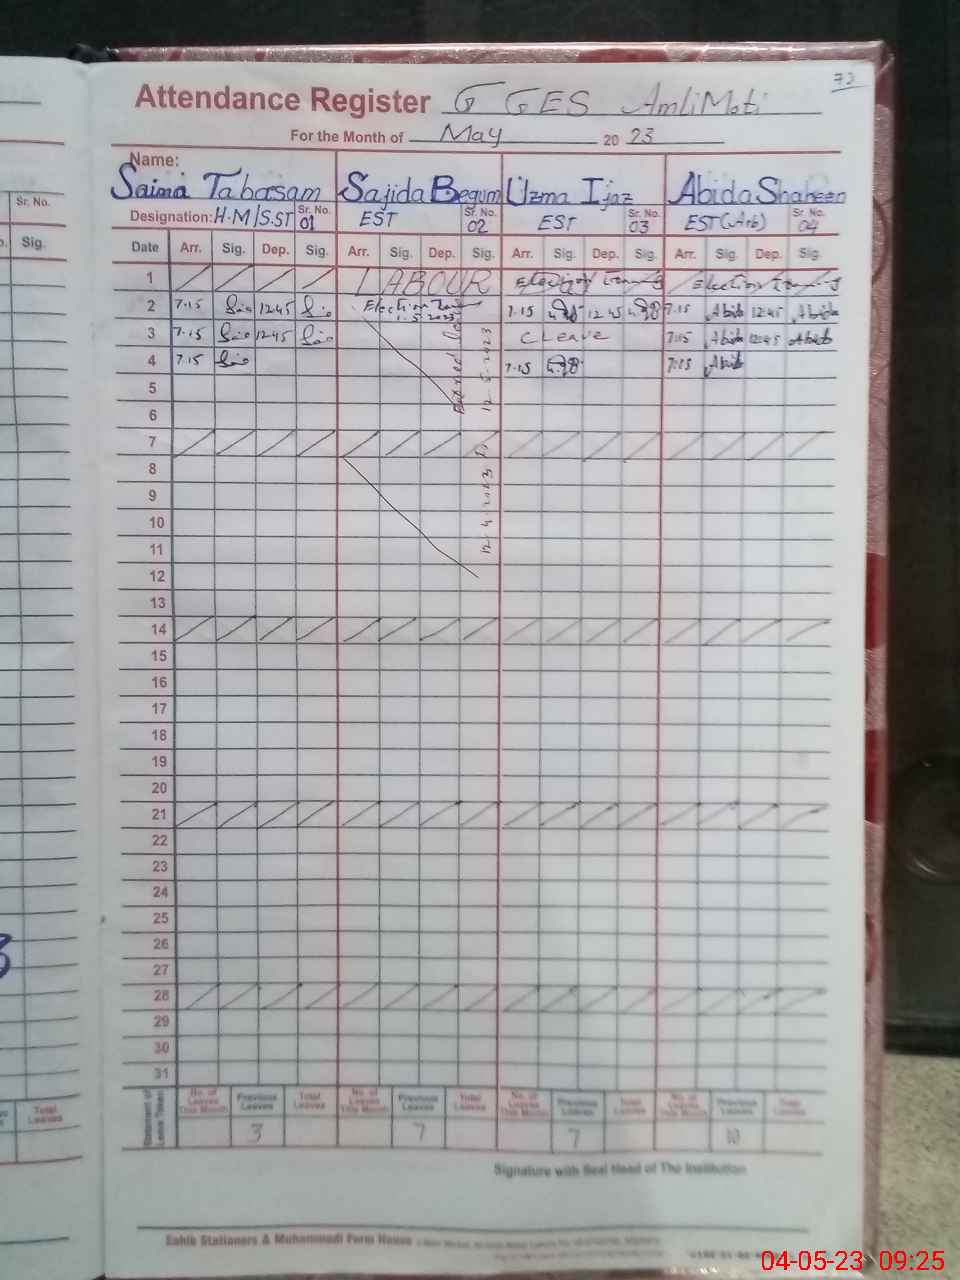 73
Attendance Register G GES AmliMoti
For the Month of May 20 23
Name:
Saima Tabasam Sajida Begum Uzma Ijaz Abida Shaheen
Designation: H.M/S.ST Sr. No. 01 EST Sr. No. 02 EST Sr. No. 03 EST (Arb) Sr. No. 04
Date Arr. Sig. Dep. Sig. Arr. Sig. Dep. Sig. Arr. Sig. Dep. Sig. Arr. Sig. Dep. Sig.
1 LABOUR Election Election
2 7.15 1245 Election 1.5.2023 7.15 12 45 7.15 Abida 12:45 Abida
3 7.15 1245 C Leave 7:15 Abida 12:45 Abida
4 7.15 7.15 7:15 Abida
5
6
12.5.2023
7
8
9
12.4.2023
10
11
12
13
14
15
16
17
18
19
20
21
22
23
24
25
26
27
28
29
30
31
Statement of Leave Taken
No. of Leaves This Month Previous Leaves Total Leaves No. of Leaves This Month Previous Leaves Total Leaves No. of Leaves This Month Previous Leaves Total Leaves No. of Leaves This Month Previous Leaves Total Leaves
3 7 7 10
Signature with Seal Head of The Institution
Sahib Stationers & Muhammadi Form House
Sr. No.
Sig.
Total Leaves
04-05-23 09:25